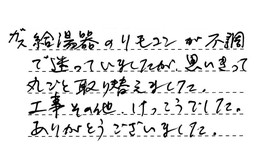 ガス給湯器のリモコンが不調
で迷っていましたが、思いきって
丸ごと取り替えました。
工事その他、けっこうでした。
ありがとうございました。